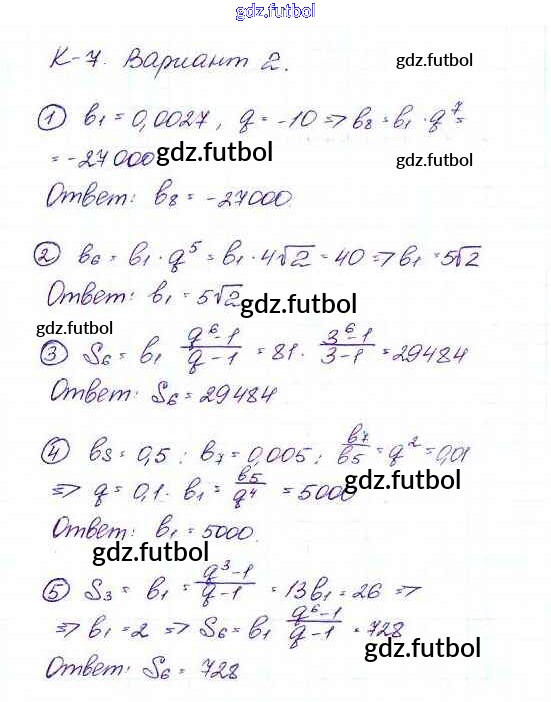 gdz.futbol
К-7. Вариант 2. gdz.futbol
① b₁ = 0,0027, q = -10 ⇒ b₈ = b₁ · q⁷ =
= -27000 gdz.futbol gdz.futbol
Ответ: b₈ = -27000.
② b₆ = b₁ · q⁵ = b₁ · 4√2 = 40 ⇒ b₁ = 5√2
Ответ: b₁ = 5√2 gdz.futbol
gdz.futbol
③ S₆ = b₁ (q⁶-1)/(q-1) = 81 · (3⁶-1)/(3-1) = 29484
Ответ: S₆ = 29484
④ b₅ = 0,5; b₇ = 0,005; b₇/b₅ = q² = 0,01
⇒ q = 0,1. b₁ = b₅/q⁴ = 5000 gdz.futbol
Ответ: b₁ = 5000.
gdz.futbol
⑤ S₃ = b₁ = (q³-1)/(q-1) = 13b₁ = 26 ⇒
⇒ b₁ = 2 ⇒ S₆ = b₁ (q⁶-1)/(q-1) = 728
gdz.futbol
Ответ: S₆ = 728